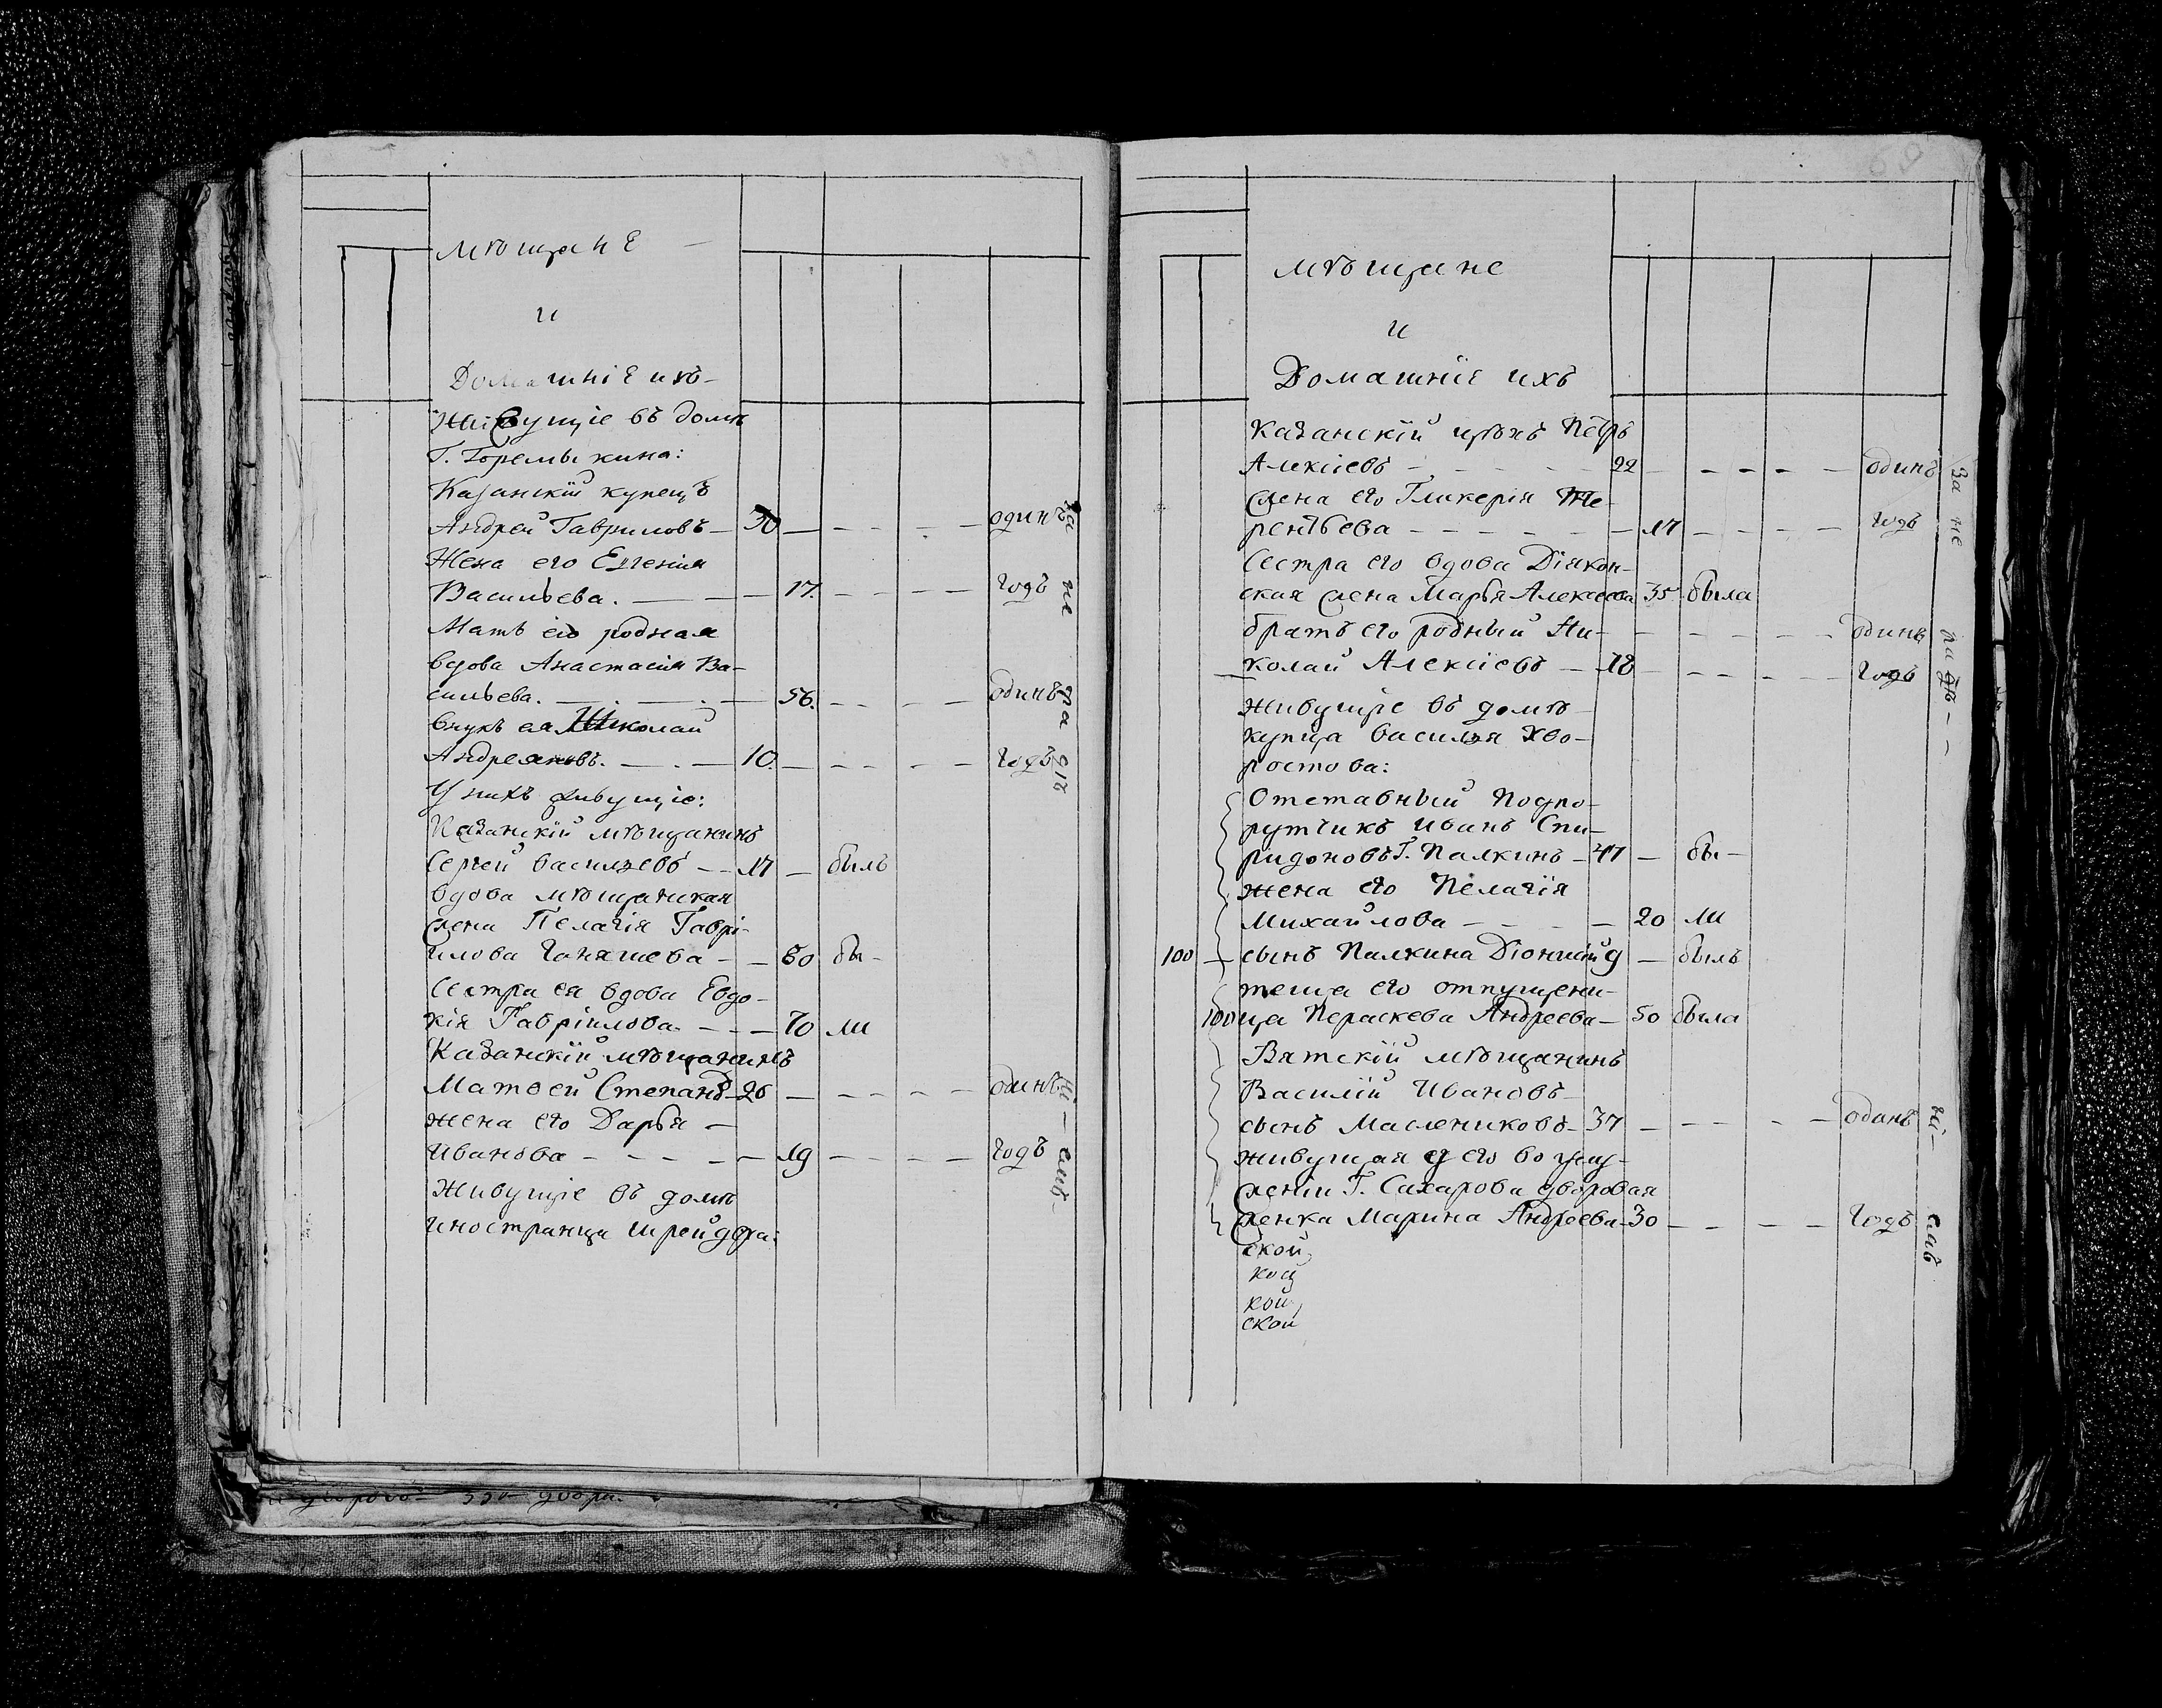 мѣщане
и
Домашніе ихъ
Живущіе въ домѣ
Г. Горемыкина:
Казанскій купецъ
Андрей Гавриловъ — 30 — — — — одинъ
Жена его Евгенія
Васильева. — — 17. — — — — годъ
Мать его родная
вдова Анастасія Ва-
сильева. — — 56. — — — — одинъ
внукъ ея Николай
Андреяновъ. — — 10. — — — — годъ
за не
ра дѣ
У нихъ живущіе:
Казанскій мѣщанинъ
Сергей Васильевъ — — 17 — былъ
Вдова мѣщанская
жена Пелагія Гаврі-
илова — — 80 бы-
Сестра ея вдова Евдо-
кія Гавріилова — — — 70 ли
Казанскій мѣщанинъ
Матѳей Степановъ — 26 — — — — одинъ
жена его Дарья —
Иванова — — — — — 19 — — — — годъ
Живущіе въ домѣ
иностранца
мѣщане
и
Домашніе ихъ
Казанскій цѣхъ Петръ
Алексіевъ — — — — — 22 — — — — — одинъ
жена его Гликерія Те-
рентьева — — — — — — 17 — — — — годъ
Сестра его вдова Діякон-
ская жена Марья Алексеева 35 была
братъ его родный Ни- — — — — — одинъ
колай Алексіевъ — 18 — — — — — годъ
за не
ра дѣ —
Живущіе въ домѣ
купца Василья Хво-
ростова:
Отставный Подпо-
рутчикъ Иванъ Спи-
ридоновъ Г. Палкинъ — 47 — бы-
жена его Пелагія
Михайлова — — — — 20 ли
100 — сынъ Палкина Діонисій 9 — былъ
теща его отпущени-
100 ца Пераскева Андреева — 50 была
Вятскій мѣщанинъ
Василій Ивановъ
сынъ Маслениковъ — 37 — — — — одинъ
живущая у его во услу-
женіи Г. Сахарова дворовая
женка Марина Андреева — 30 — — — — годъ
ской
кой
кой
ской